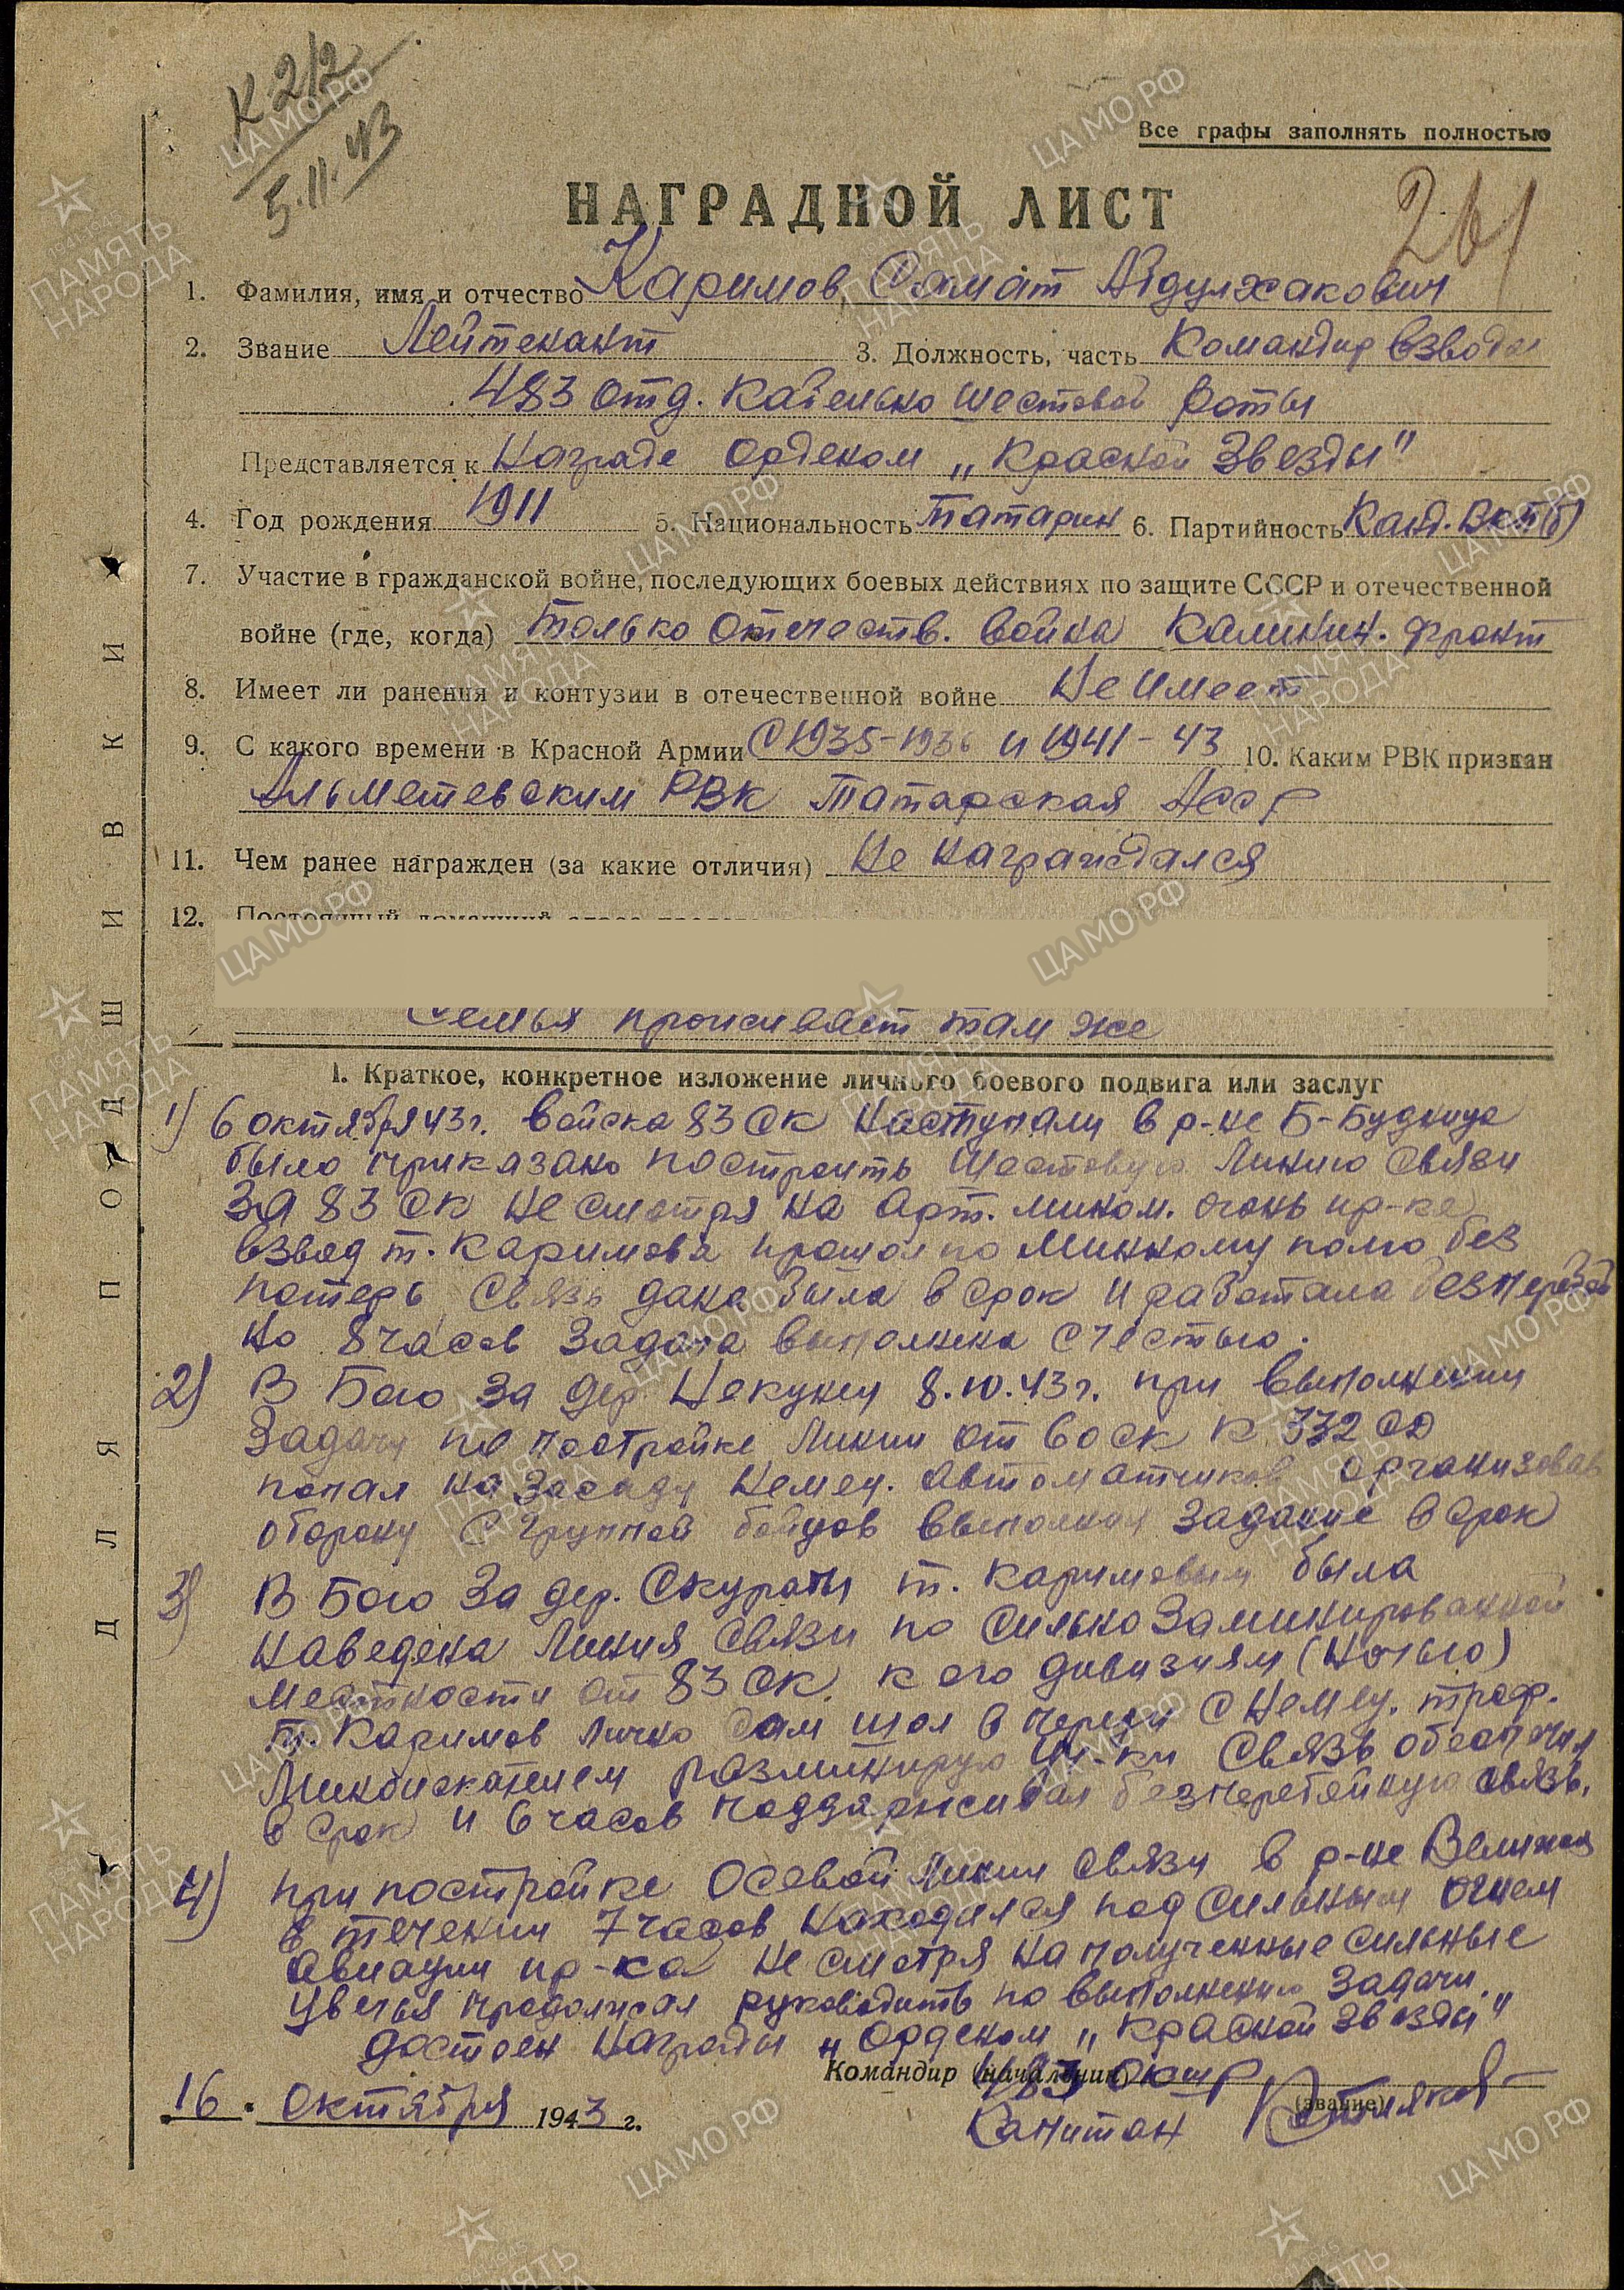 К 212
5.11.43
Все графы заполнять полностью
261
НАГРАДНОЙ ЛИСТ
1. Фамилия, имя и отчество Каримов Самат Абдулхакович
2. Звание Лейтенант 3. Должность, часть Командир взвода
483 отд. Кабельно шестовой роты
Представляется к Награде орденом „Красной Звезды"
4. Год рождения 1911 5. Национальность Татарин 6. Партийность Канд. ВКП(б)
7. Участие в гражданской войне, последующих боевых действиях по защите СССР и отечественной
войне (где, когда) только отечеств. война Калинин. фронт
8. Имеет ли ранения и контузии в отечественной войне Не имеет
9. С какого времени в Красной Армии С 1935-1936 и 1941-43 10. Каким РВК призван
Альметевским РВК Татарская АССР
11. Чем ранее награжден (за какие отличия) Не награждался
12. Постоянный домашний адрес
Семья проживает там же
I. Краткое, конкретное изложение личного боевого подвига или заслуг
1) 6 октября 43 г. войска 83 СК наступали в р-не Б-Будница
было приказано построить Шестовую Линию Связи
За 83 СК не смотря на арт. мином. огонь пр-ка
взвод т. Каримова прошол по Минному полю без
потерь Связь дана была в срок и работала
но 8 часов Задача выполнена с честью.
2) В Бою За дер. 8.10.43 г. при выполнении
Задачи по постройке Линии от 60 СК к 332 СД
попал на Засаду Немец. автоматчиков организовав
оборону с группой бойцов выполнил Задание в срок
3) В Бою За дер. Скураты т. Каримовым была
наведена Линия Связи по Сильно Заминированной
местности от 83 СК. к его дивизиям (Ночью)
т. Каримов Лично Сам шол в переди с Немец. троф.
Миноискателем разминирую Связь обеспечил
в срок и 6 часов поддярживал безперебойную связь.
4) при постройке Осевой Линии Связи в р-не Велижа
в течении 7 часов находился под Сильным огнем
Авиации пр-ка не смотря на полученные сильные
увечья продолжал руководить по выполнению Задачи.
достоен Награды „Орденом „Красной Звезды"
Командир (начальник) 483 ОКШР
(звание)
16. Октября 1943 г.
Капитан
ДЛЯ ПОДШИВКИ
ЦА МО РФ
ПАМЯТЬ НАРОДА
1941-1945